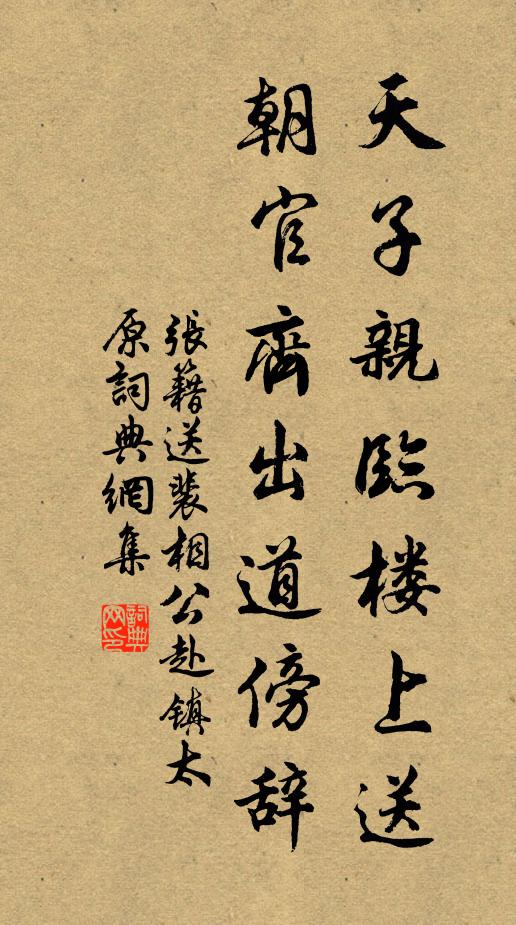 天子親臨楼上送
朝官齊出道傍辞
張籍送裴相公赴鎮太
原詞典網集
詞典网印